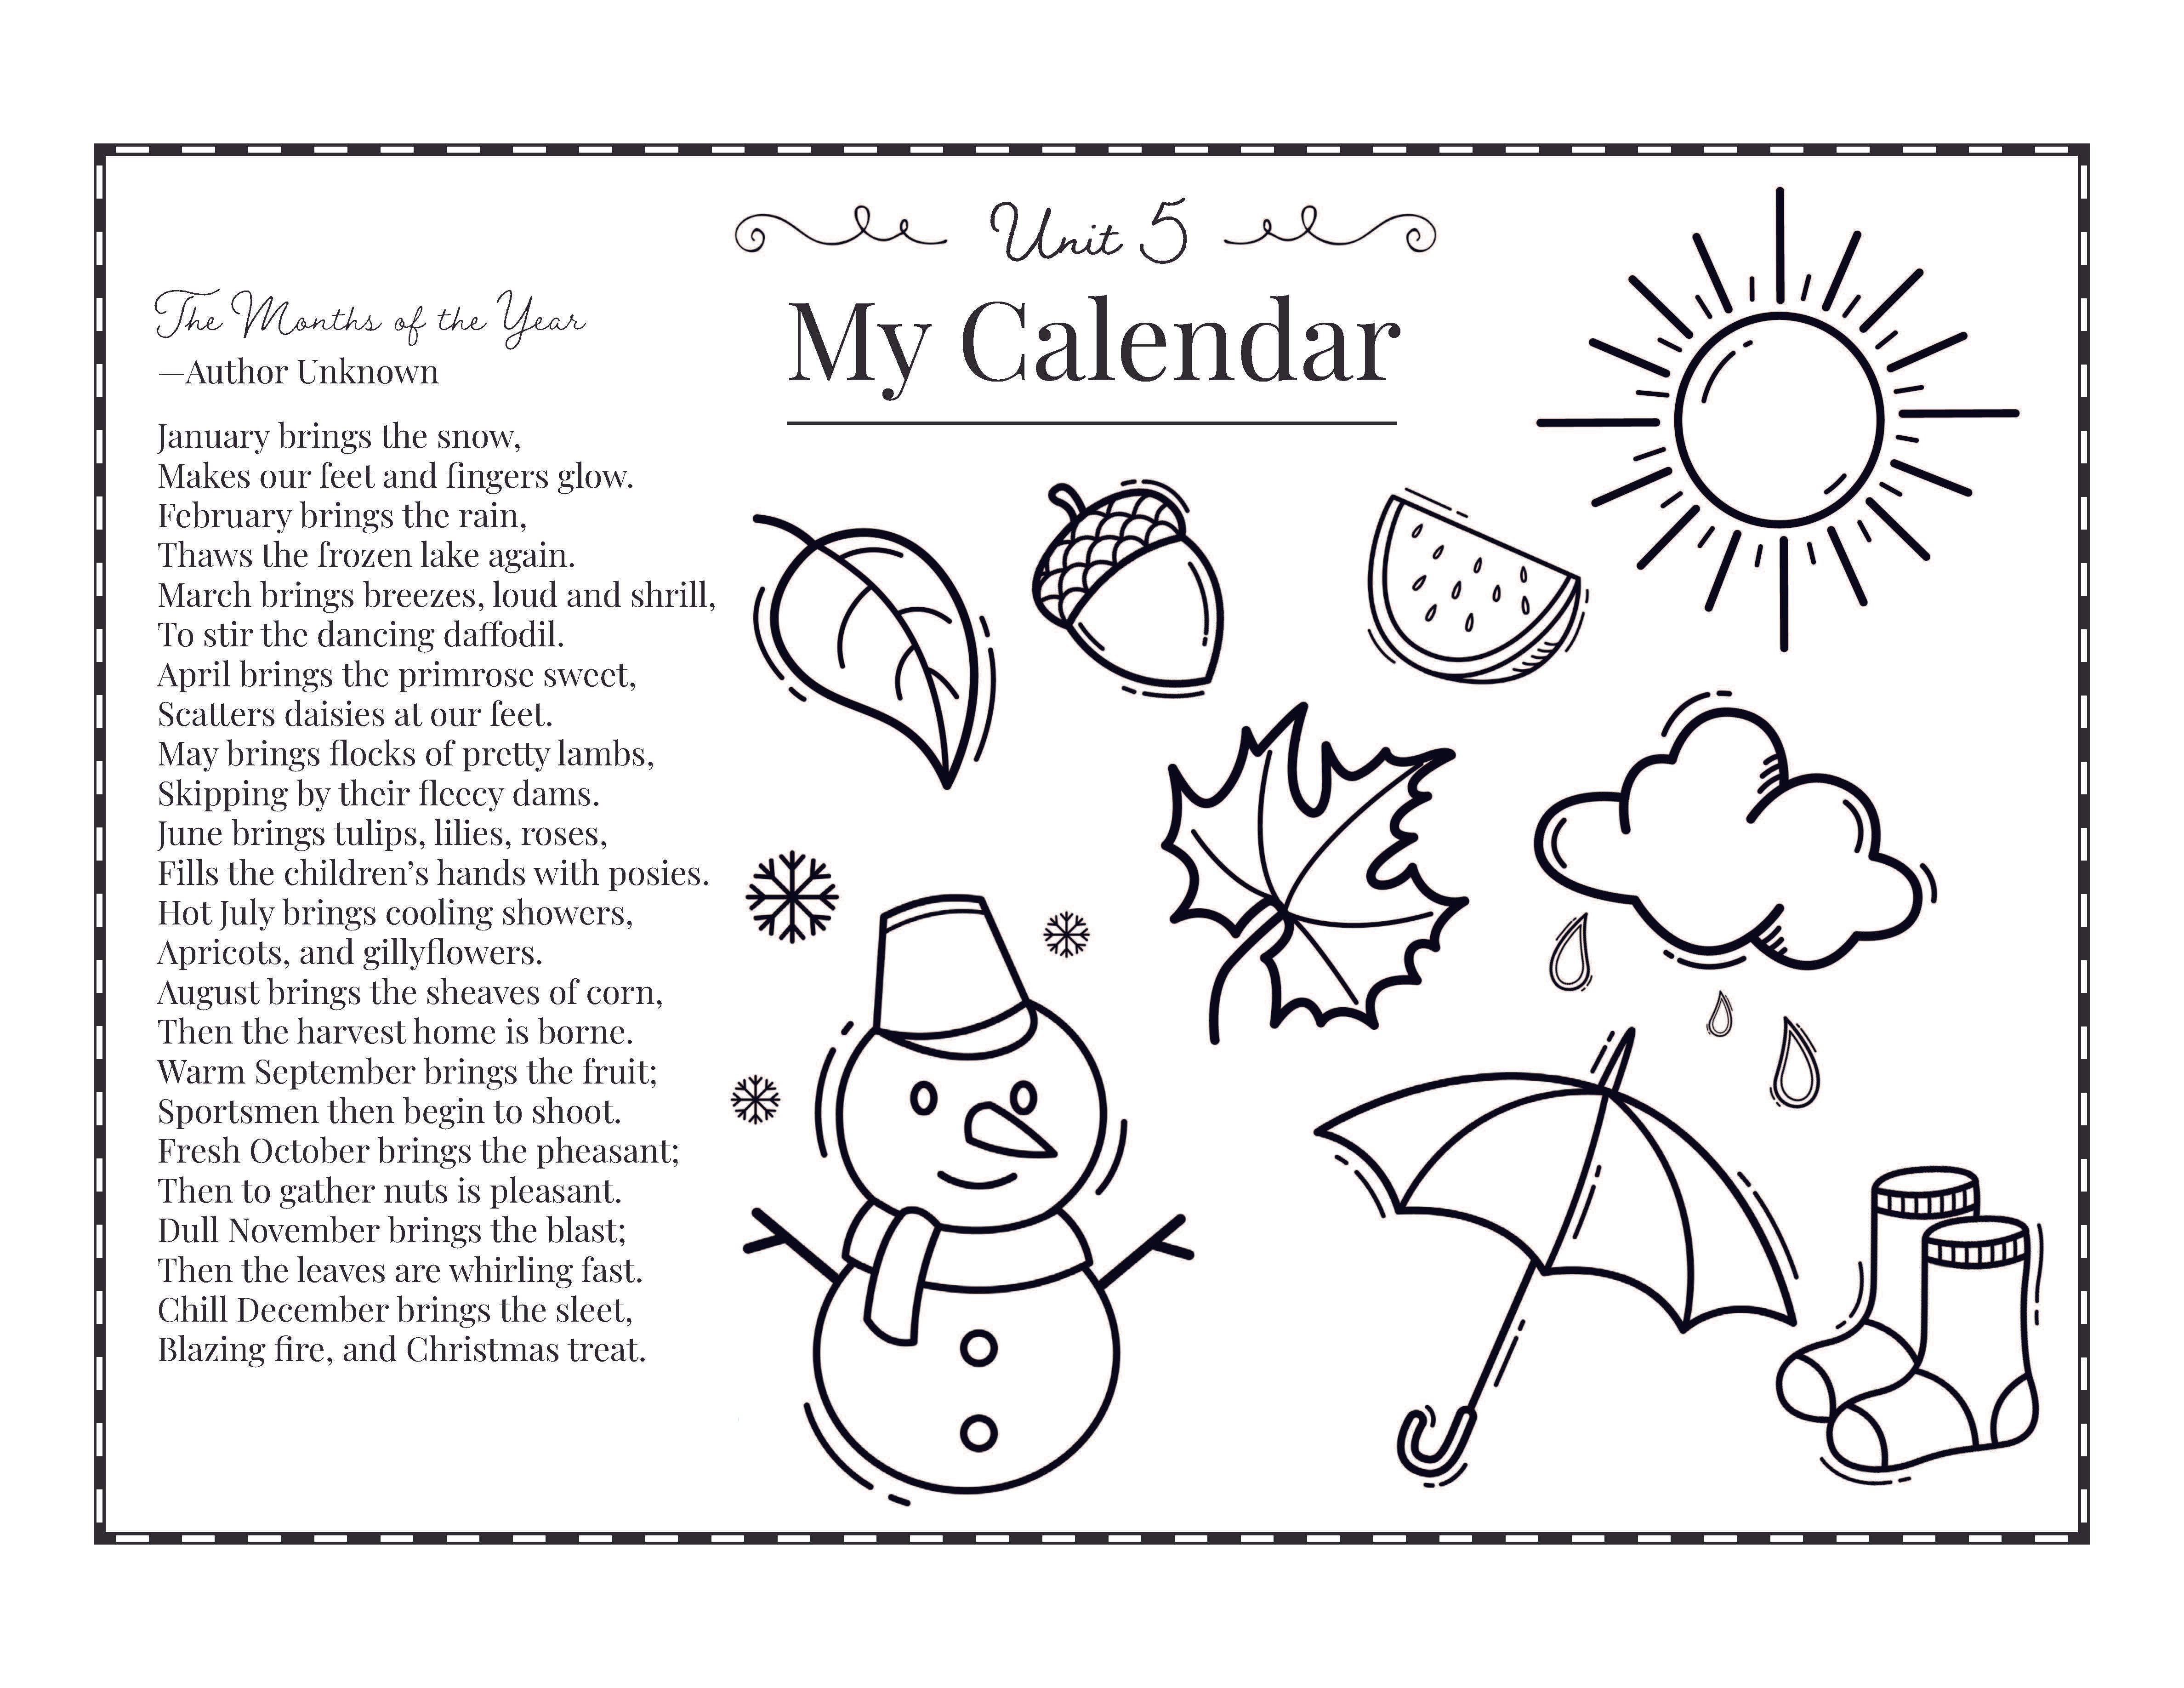 Unit 5
My Calendar
The Months of the Year
—Author Unknown
January brings the snow,
Makes our feet and fingers glow.
February brings the rain,
Thaws the frozen lake again.
March brings breezes, loud and shrill,
To stir the dancing daffodil.
April brings the primrose sweet,
Scatters daisies at our feet.
May brings flocks of pretty lambs,
Skipping by their fleecy dams.
June brings tulips, lilies, roses,
Fills the children’s hands with posies.
Hot July brings cooling showers,
Apricots, and gillyflowers.
August brings the sheaves of corn,
Then the harvest home is borne.
Warm September brings the fruit;
Sportsmen then begin to shoot.
Fresh October brings the pheasant;
Then to gather nuts is pleasant.
Dull November brings the blast;
Then the leaves are whirling fast.
Chill December brings the sleet,
Blazing fire, and Christmas treat.